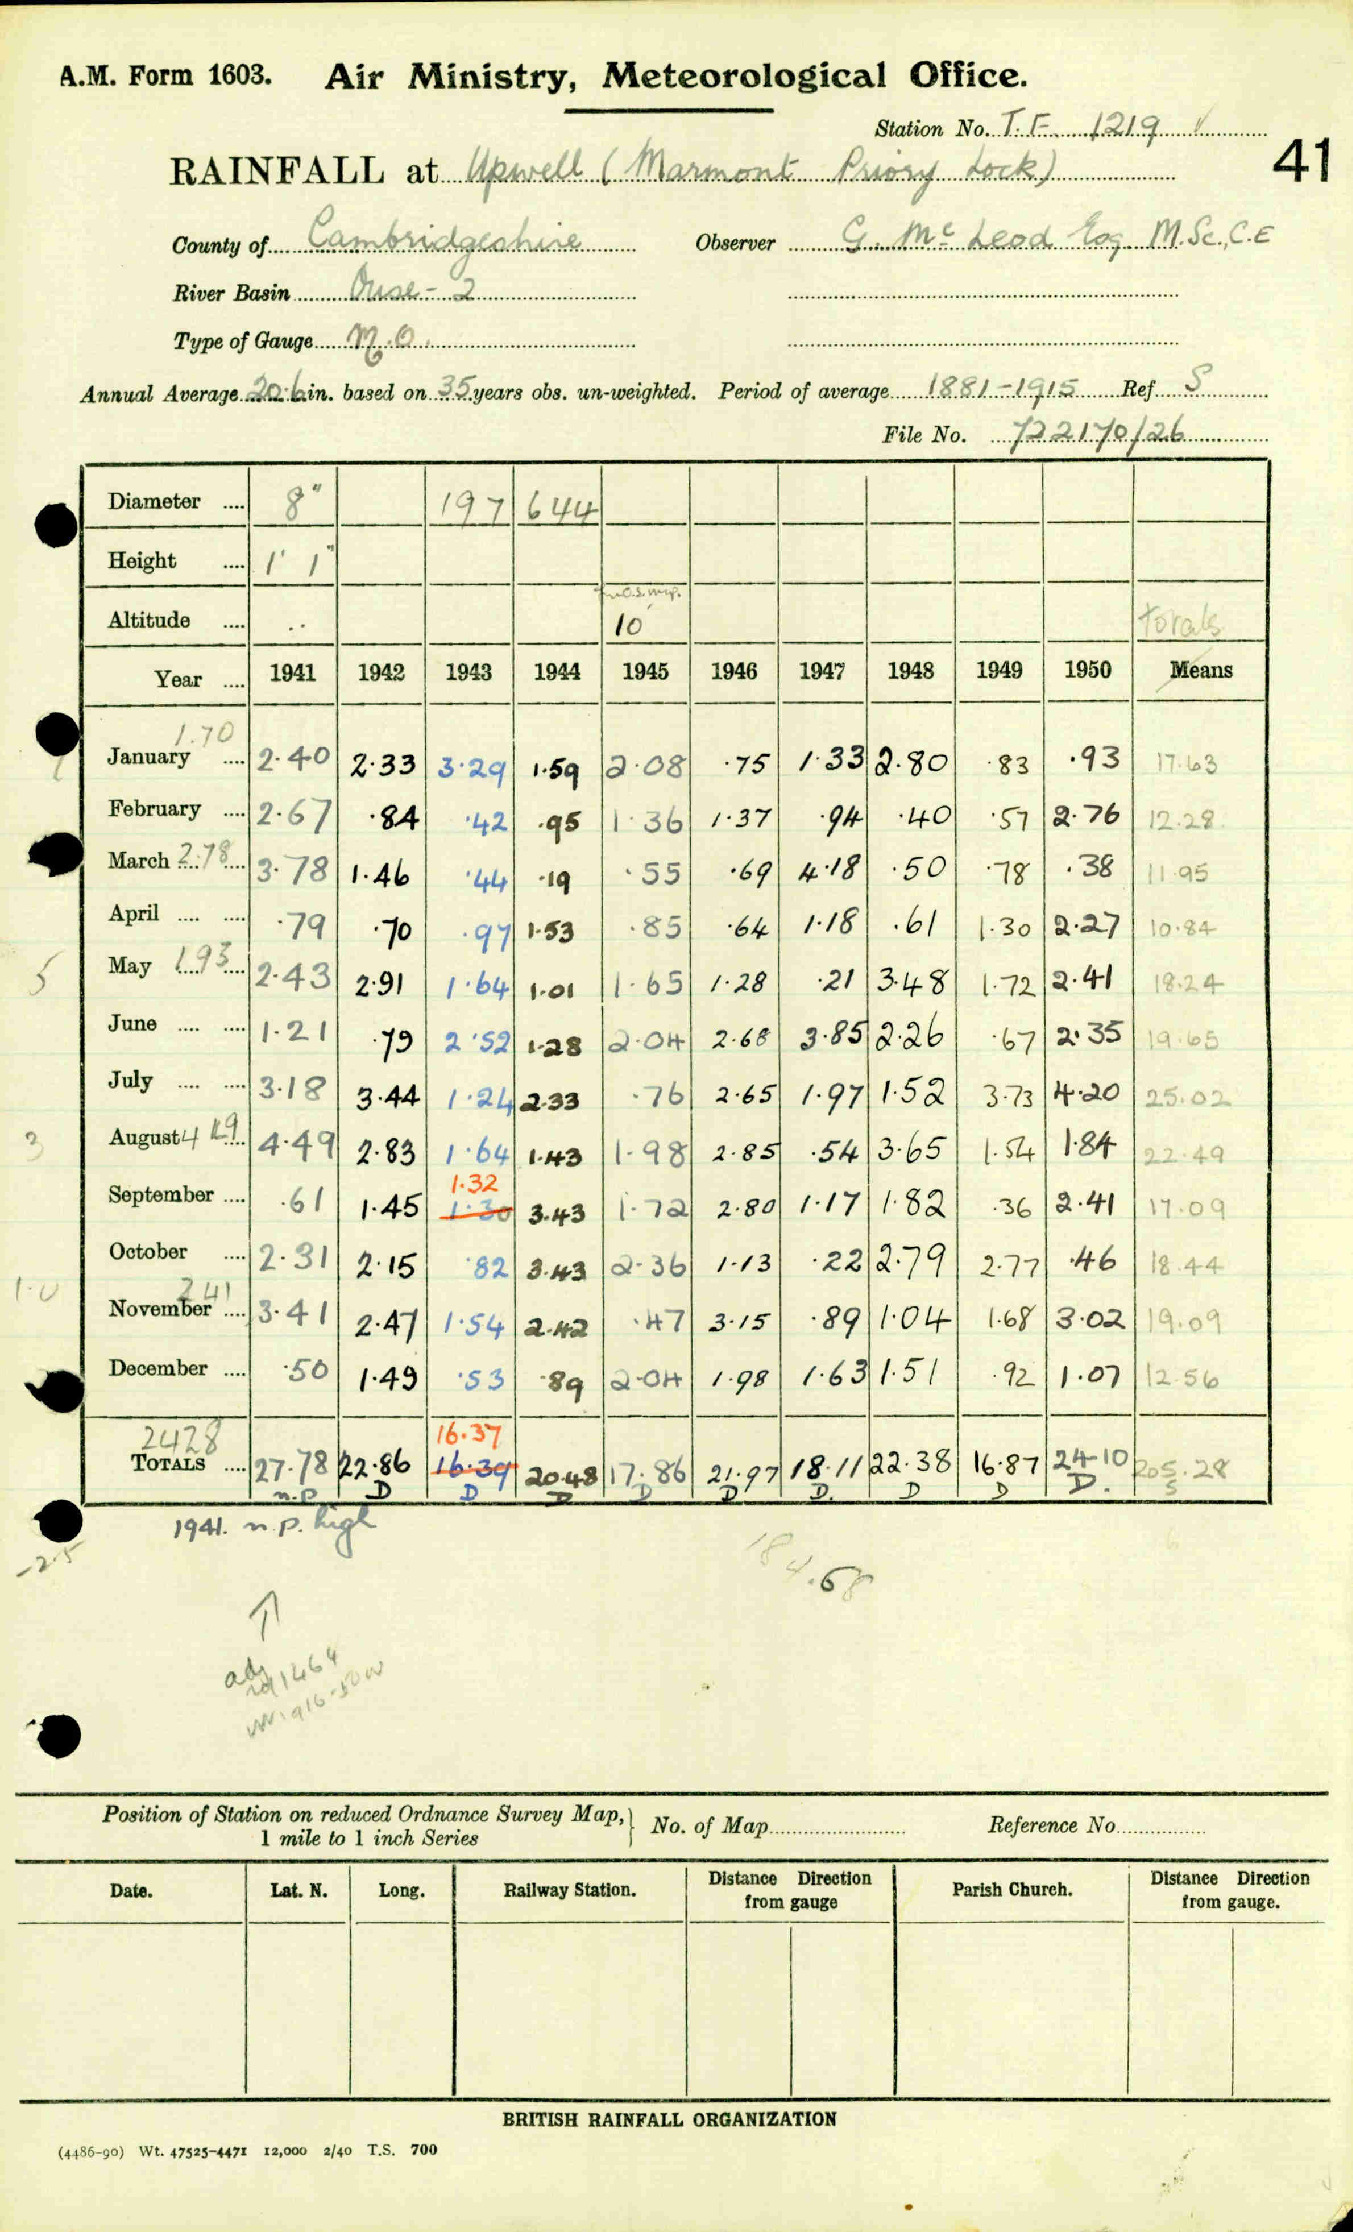 A.M. Form 1603. Air Ministry, Meteorological Office.
Station No. T.F. 1219
41
RAINFALL at Upwell (Marmont Priory Lock)
County of Cambridgeshire Observer G. Mc Leod Esq. M.Sc., C.E
River Basin Ouse-2
Type of Gauge M.O.
Annual Average 20.6 in. based on 35 years obs. un-weighted. Period of average 1881-1915 Ref. S
File No. 722170/26
Diameter 8" 197 644
Height 1' 1"
Altitude .. 10' totals
Year 1941 1942 1943 1944 1945 1946 1947 1948 1949 1950 Means
1.70
January 2.40 2.33 3.29 1.59 2.08 .75 1.33 2.80 .83 .93 17.63
February 2.67 .84 .42 .95 1.36 1.37 .94 .40 .57 2.76 12.28
March 2.78 3.78 1.46 .44 .19 .55 .69 4.18 .50 .78 .38 11.95
April .79 .70 .97 1.53 .85 .64 1.18 .61 1.30 2.27 10.84
5 May 1.93 2.43 2.91 1.64 1.01 1.65 1.28 .21 3.48 1.72 2.41 18.24
June 1.21 .79 2.52 1.28 2.04 2.68 3.85 2.26 .67 2.35 19.65
July 3.18 3.44 1.24 2.33 .76 2.65 1.97 1.52 3.73 4.20 25.02
3 August 4.49 2.83 1.64 1.43 1.98 2.85 .54 3.65 1.54 1.84 22.49
1.32
September .61 1.45 1.30 3.43 1.72 2.80 1.17 1.82 .36 2.41 17.09
October 2.31 2.15 .82 3.43 2.36 1.13 .22 2.79 2.77 .46 18.44
1.0 2.41
November 3.41 2.47 1.54 2.42 .47 3.15 .89 1.04 1.68 3.02 19.09
December .50 1.49 .53 .89 2.04 1.98 1.63 1.51 .92 1.07 12.56
2428 16.37
TOTALS 27.78 22.86 16.39 20.48 17.86 21.97 18.11 22.38 16.87 24.10 205.28
n.p. D D D D D D. D D D. S
1941. n.p. high
-2.5
184.68
adj
Position of Station on reduced Ordnance Survey Map, 1 mile to 1 inch Series } No. of Map Reference No.
Date. Lat. N. Long. Railway Station. Distance Direction from gauge Parish Church. Distance Direction from gauge.
BRITISH RAINFALL ORGANIZATION
(4486-90) Wt. 47525-4471 12,000 2/40 T.S. 700